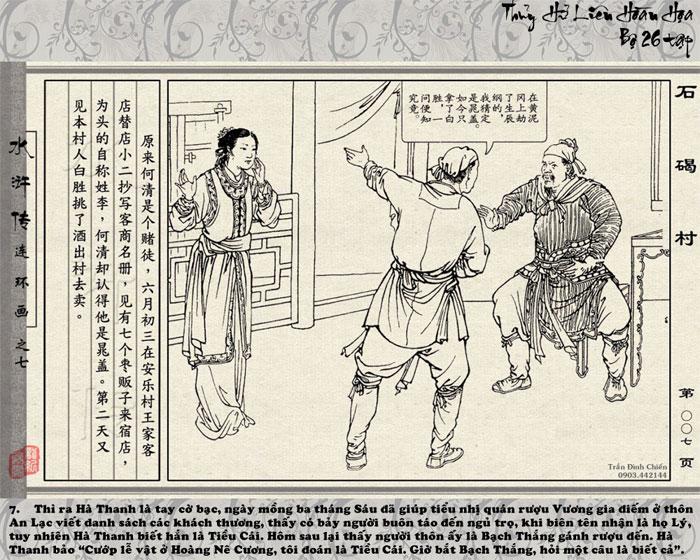 Thủy Hử Liên Hoàn Họa
Bộ 26 tập
石碣村
第〇〇七页
水浒传连环画之七
原来何清是个赌徒，六月初三在安乐村王家客
店替店小二抄写客商名册，见有七个枣贩子来宿店，
为头的自称姓李，何清却认得他是晁盖。第二天又
见本村人白胜挑了酒出村去卖。
在黄泥
冈上劫
了生辰
纲的，
我猜定
是晁盖。
如今只
拿了白
胜，一
问便知
究竟。
Trần Đình Chiến
0903.442144
7. Thì ra Hà Thanh là tay cờ bạc, ngày mồng ba tháng Sáu đã giúp tiểu nhị quán rượu Vương gia điếm ở thôn
An Lạc viết danh sách các khách thương, thấy có bảy người buôn táo đến ngủ trọ, khi biên tên nhận là họ Lý,
tuy nhiên Hà Thanh biết hắn là Tiều Cái. Hôm sau lại thấy người thôn ấy là Bạch Thắng gánh rượu đến. Hà
Thanh bảo “Cướp lễ vật ở Hoàng Nê Cương, tôi đoán là Tiều Cái. Giờ bắt Bạch Thắng, hỏi một câu là biết cả”.